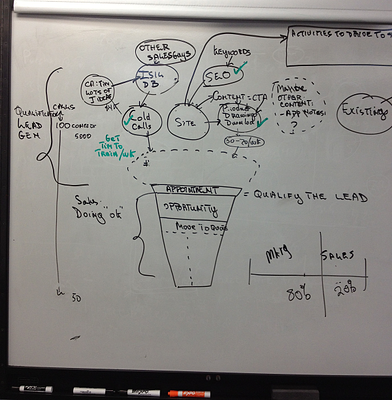 ACTIVITIES TO
OTHER
SALES GUYS
KEYWORDS
SEO
DB
LOTS OF
CONTENT - CTA
Maybe
OTHER
CONTENT:
- APP NOTES:
?
Cold
Calls
Site
Product
Drawing
Download
EXISTING
Qualification
LEAD
GEN
CALLS
100
5000
GET
TIM TO
TRAIN/WK
50-70/WK
APPOINTMENT
= QUALIFY THE LEAD
OPPORTUNITY
MOVE TO QUOTE
Sales
Doing "ok"
MKTG
SALES
80%
20%
50